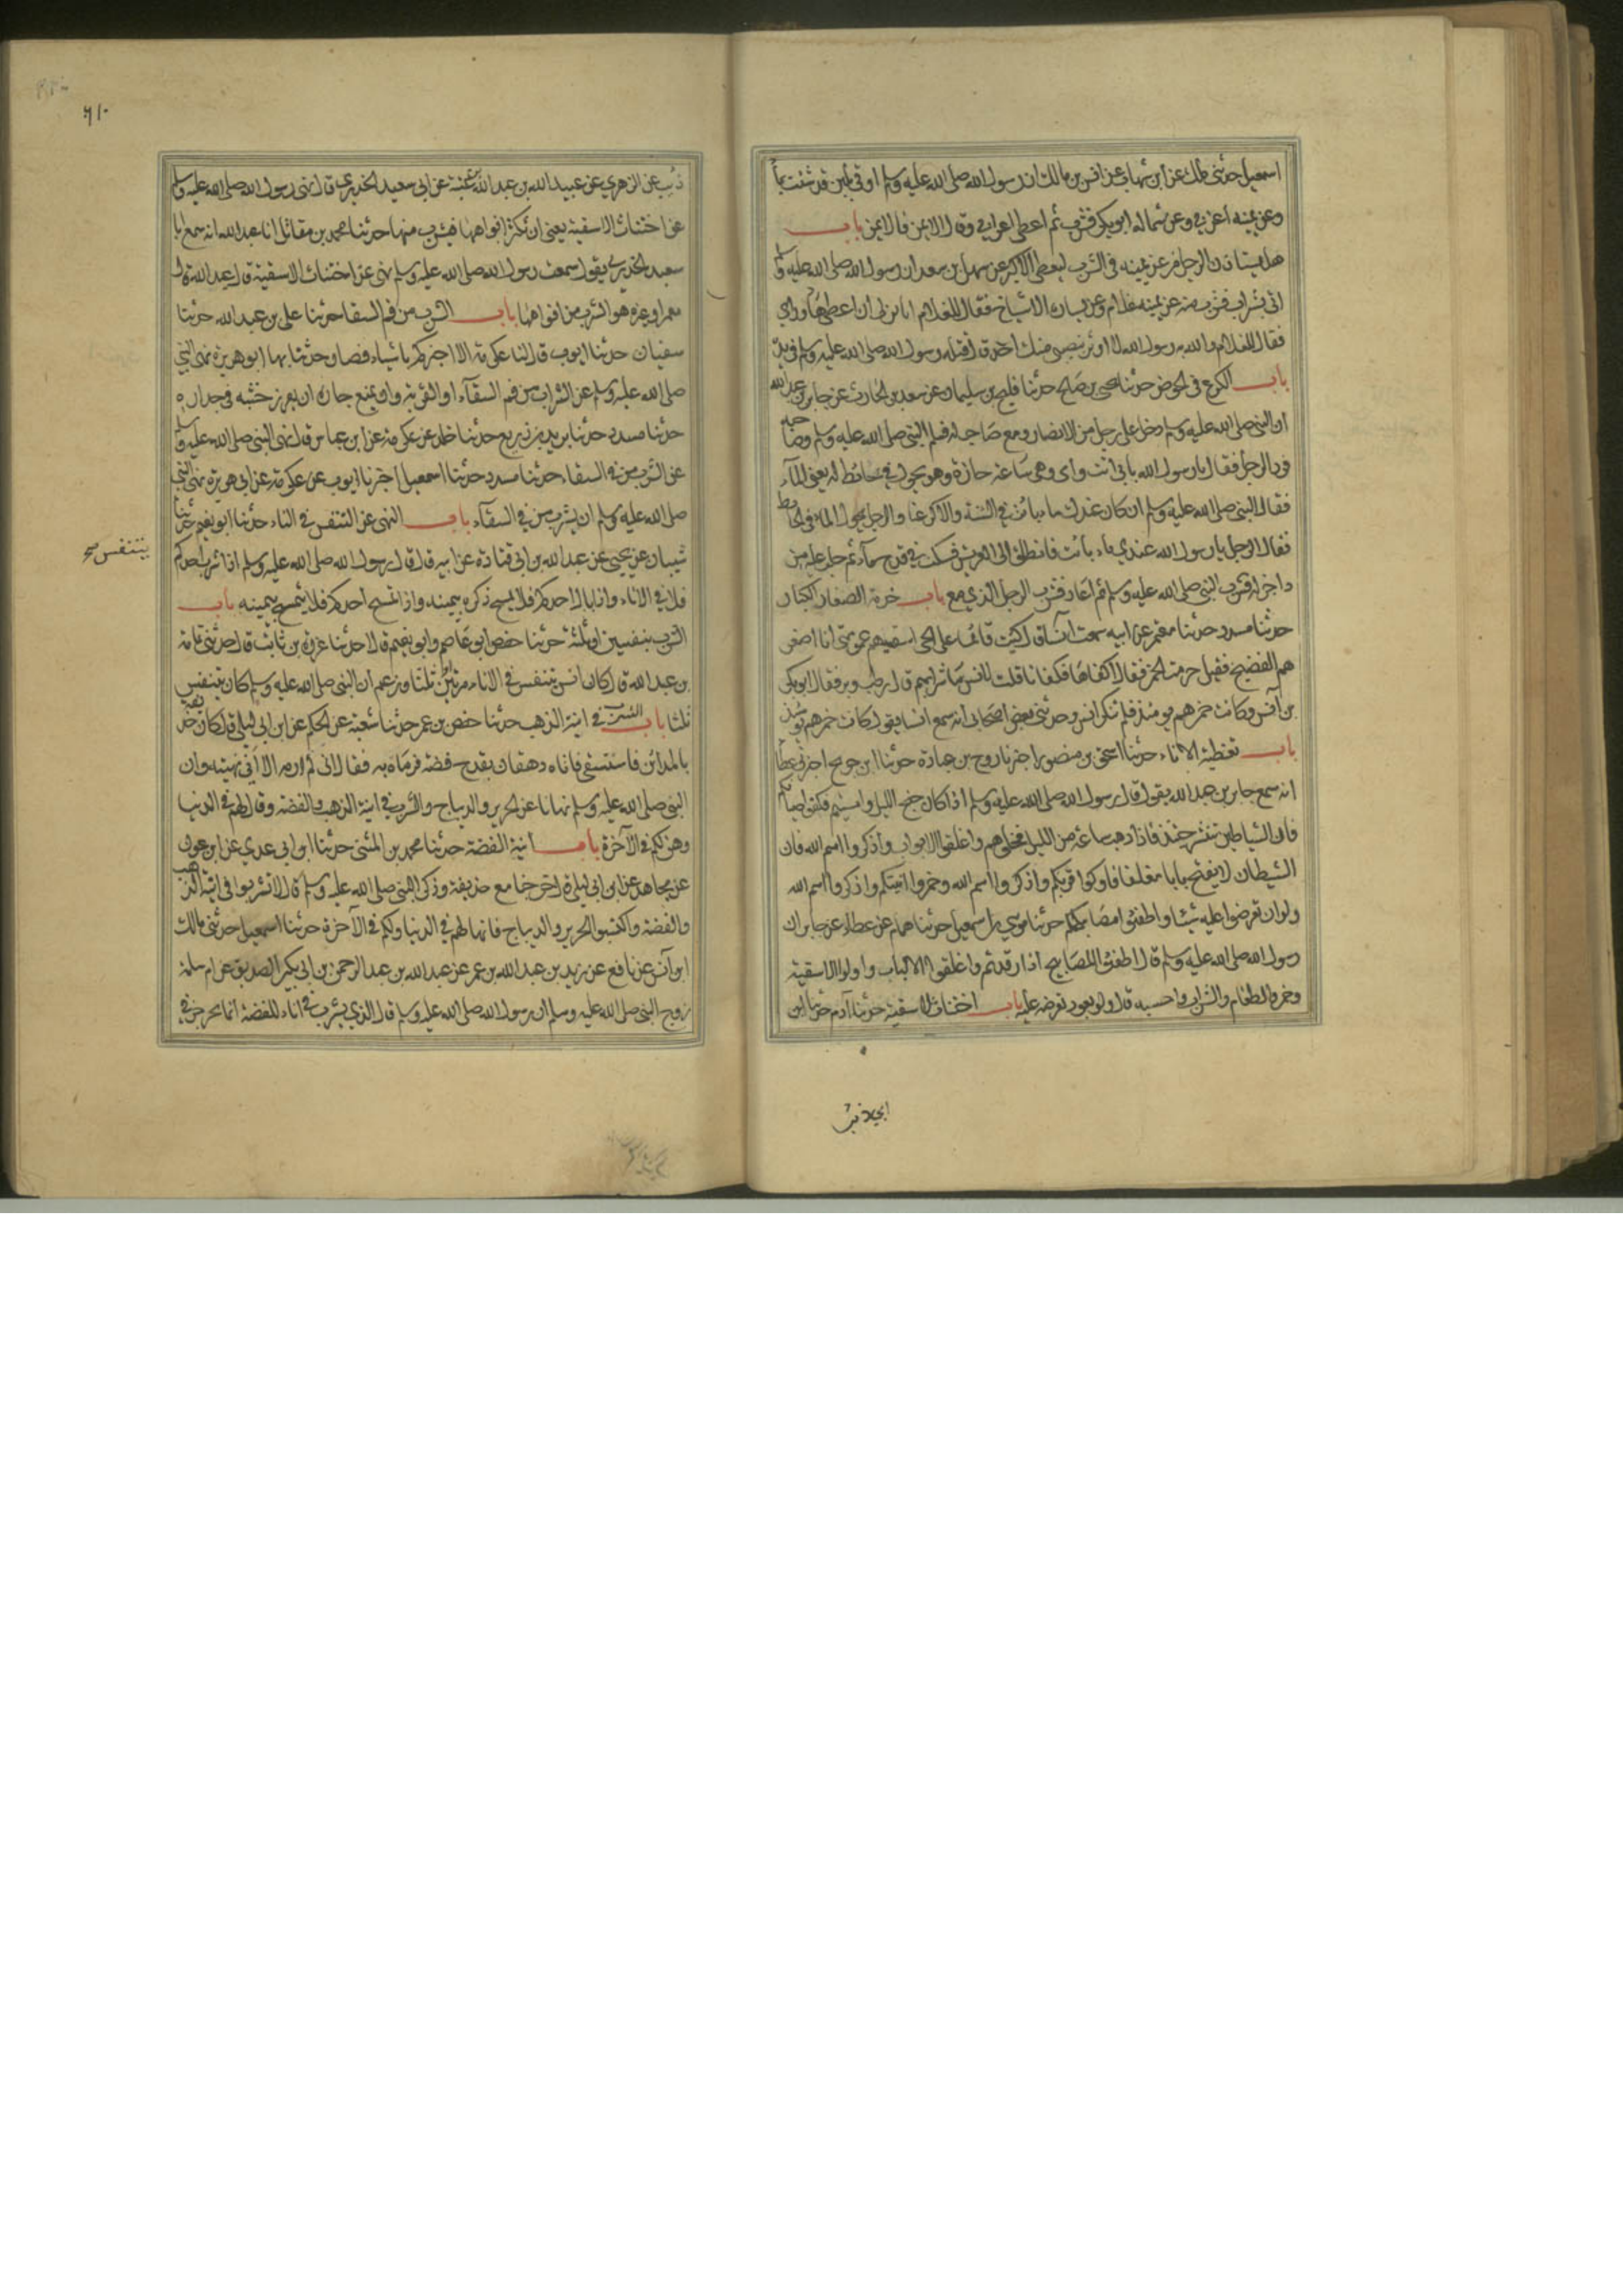 اسمعيل حدثني ملك عن ابن شهاب عن انس بن مالك ان رسول الله صلى الله عليه وسلم اوتي بلبن قد شيب بما
وعن يمينه اعرابي وعن شماله ابو بكر فشرب ثم اعطى اعرابي وقال الايمن فالايمن باب
هل يستاذن الرجل من عن يمينه في الشرب ليعطي الاكبر عن سهل بن سعد ان رسول الله صلى الله عليه وسلم
اتي بشراب فشرب منه عن يمينه غلام وعن يساره الاشياخ فقال للغلام اتاذن لي ان اعطي هاولاي
فقال الغلام والله يا رسول الله لا اوثر بنصيبي منك احد قال فتله رسول الله صلى الله عليه وسلم في يده
باب الكرع في الحوض حدثنا يحيى بن صالح حدثنا فليح بن سليمان عن سعيد بن الحارث عن جابر بن عبد الله
ان النبي صلى الله عليه وسلم دخل على رجل من الانصار ومع صاحب له فسلم النبي صلى الله عليه وسلم وصاحبه
فرد الرجل فقال يا رسول الله بابي انت وامي وهي ساعة حارة وهو يحول في حائط له يعني المآء
فقال النبي صلى الله عليه وسلم ان كان عندك ما بات في الشنة والا كرعنا والرجل يحول الماء في الحايط
فقال الرجل يا رسول الله عندي ماء بائت فانطلق الى العريش فسكب في قدح مآء ثم حلب عليه من
داجن له فشرب النبي صلى الله عليه وسلم ثم اعاد فشرب الرجل الذي مع باب خدمة الصغار الكبار
حدثنا مسدد حدثنا معتمر عن ابيه سمعت انسا قال كنت قائما على الحي اسقيهم عمومتي انا اصغر
هم الفضيخ فقيل حرمت الخمر فقال اكفاها فكفانا قلت لانس ما شرابهم قال رطب وبر فقال ابو بكر
بن انس وكانت خمرهم يومئذ فلم ينكر انس وحدثني بعض اصحابي انه سمع انسا يقول كانت خمرهم يومئذ
باب تغطية الاناء حدثنا اسحق بن منصور اخبرنا روح بن عبادة حدثنا ابن جريج اخبرني عطا
انه سمع جابر بن عبد الله يقول قال رسول الله صلى الله عليه وسلم اذا كان جنح الليل وامسيتم فكفوا صبيانكم
فان الشياطين تنتشر حينئذ فاذا ذهب ساعة من الليل فخلوهم واغلقوا الابواب واذكروا اسم الله فان
الشيطان لا يفتح بابا مغلقا فاوكوا قربكم واذكروا اسم الله وخمروا آنيتكم واذكروا اسم الله
ولو ان تعرضوا عليه شيئا واطفئوا مصابيحكم حدثنا موسى بن اسمعيل حدثنا همام عن عطاء عن جابر ان
رسول الله صلى الله عليه وسلم قال اطفئوا المصابيح اذا رقدتم واغلقوا الالباب واولوا الاسقية
وخمروا الطعام والشراب واحسبه قال ولو بعود تعرضه عليه باب اختناث الاسقية حدثنا آدم حدثنا ابن
٦١٠
ذئب عن الزهري عن عبيد الله بن عبد الله بن عتبة عن ابي سعيد الخدري قال نهى رسول الله صلى الله عليه وسلم
عن اختناث الاسقية يعني ان تكسر افواهها فيشرب منها حدثنا محمد بن مقاتل انا عبد الله انه سمع ابا
سعيد الخدري يقول سمعت رسول الله صلى الله عليه وسلم نهى عن اختناث الاسقية قال عبد الله قال
معمر او غيره هو الشرب من افواهها باب الشرب من فم السقا حدثنا علي بن عبد الله حدثنا
سفيان حدثنا ايوب قال لنا عكرمة الا اخبركم باشياء قصار حدثنا بها ابو هريرة نهى النبي
صلى الله عليه وسلم عن الشراب من فم السقآء او القربة وان يمنع جاره ان يغرز خشبه في جداره
حدثنا مسدد حدثنا يزيد بن زريع حدثنا خالد عن عكرمة عن ابن عباس قال نهى النبي صلى الله عليه وسلم
عن الشرب من في السقاء حدثنا مسدد حدثنا اسمعيل اخبرنا ايوب عن عكرمة عن ابي هريرة نهى النبي
صلى الله عليه وسلم ان يشرب من في السقآء باب النهي عن التنفس في الاناء حدثنا ابو نعيم حدثنا
شيبان عن يحيى عن عبد الله بن ابي قتادة عن ابيه قال قال رسول الله صلى الله عليه وسلم اذا شرب احدكم
يتنفس صح
فلا في الاناء واذا بال احدكم فلا يمسح ذكره بيمينه واذا تمسح احدكم فلا يتمسح بيمينه باب
الشرب بنفسين او ثلثة حدثنا حفص ابو عاصم وابو نعيم قالا حدثنا عزرة بن ثابت قال حدثني ثمامة
بن عبد الله قال كان انس يتنفس في الاناء مرتين او ثلثا وزعم ان النبي صلى الله عليه وسلم كان يتنفس
ثلثا باب الشرب في انية الذهب حدثنا حفص بن عمر حدثنا شعبة عن الحكم عن ابن ابي ليلى قال كان حذيفة
بالمدائن فاستسقى فاتاه دهقان بقدح فضة فرماه به فقال اني لم ارمه الا اني نهيته وان
النبي صلى الله عليه وسلم نهانا عن الحرير والديباج والشرب في انية الذهب والفضة وقال لهم في الدنيا
وهن لكم في الآخرة باب انية الفضة حدثنا محمد بن المثنى حدثنا ابن ابي عدي عن ابن عون
عن مجاهد عن ابن ابي ليلى قال خرجنا مع حذيفة وذكر النبي صلى الله عليه وسلم قال لا تشربوا في انية الذهب
والفضة والحرير والديباج فانها لهم في الدنيا ولكم في الآخرة حدثنا اسمعيل حدثني مالك
ابن آنس عن نافع عن زيد بن عبد الله بن عمر عن عبد الله بن عبد الرحمن بن ابي بكر الصديق عن ام سلمة
زوج النبي صلى الله عليه وسلم ان رسول الله صلى الله عليه وسلم قال الذي يشرب في اناء الفضة انما يجرجر في